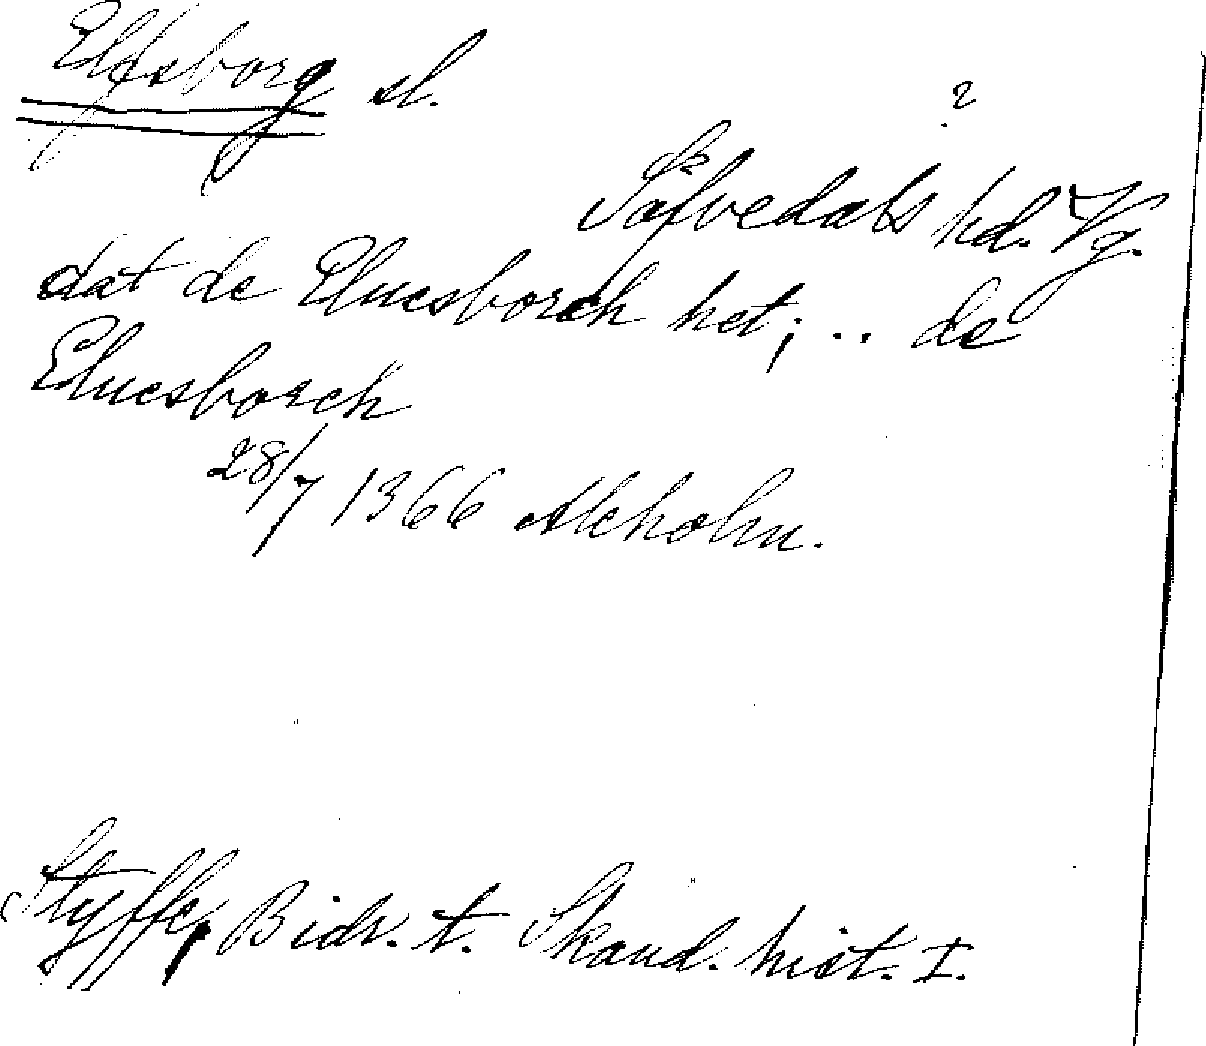 Elfsborg sl.
?
Säfvedals hd. Vg.
dat de Eluesborch het; .. de
Eluesborch
28/7 1366 Alcholm.
Styffe, Bidr. t. Skand. hist. I.